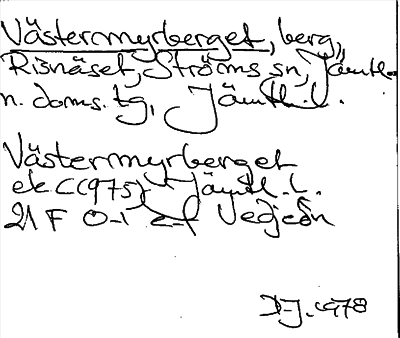 Västermyrberget, berg,
Risnäset, Ströms sn, Jämtl.
n. doms. tg, Jämtl. l.
Västermyrberget
ek C (1975) Jämtl. l.
21 F 0-1 e-f Vedjeön
D-J. 1978